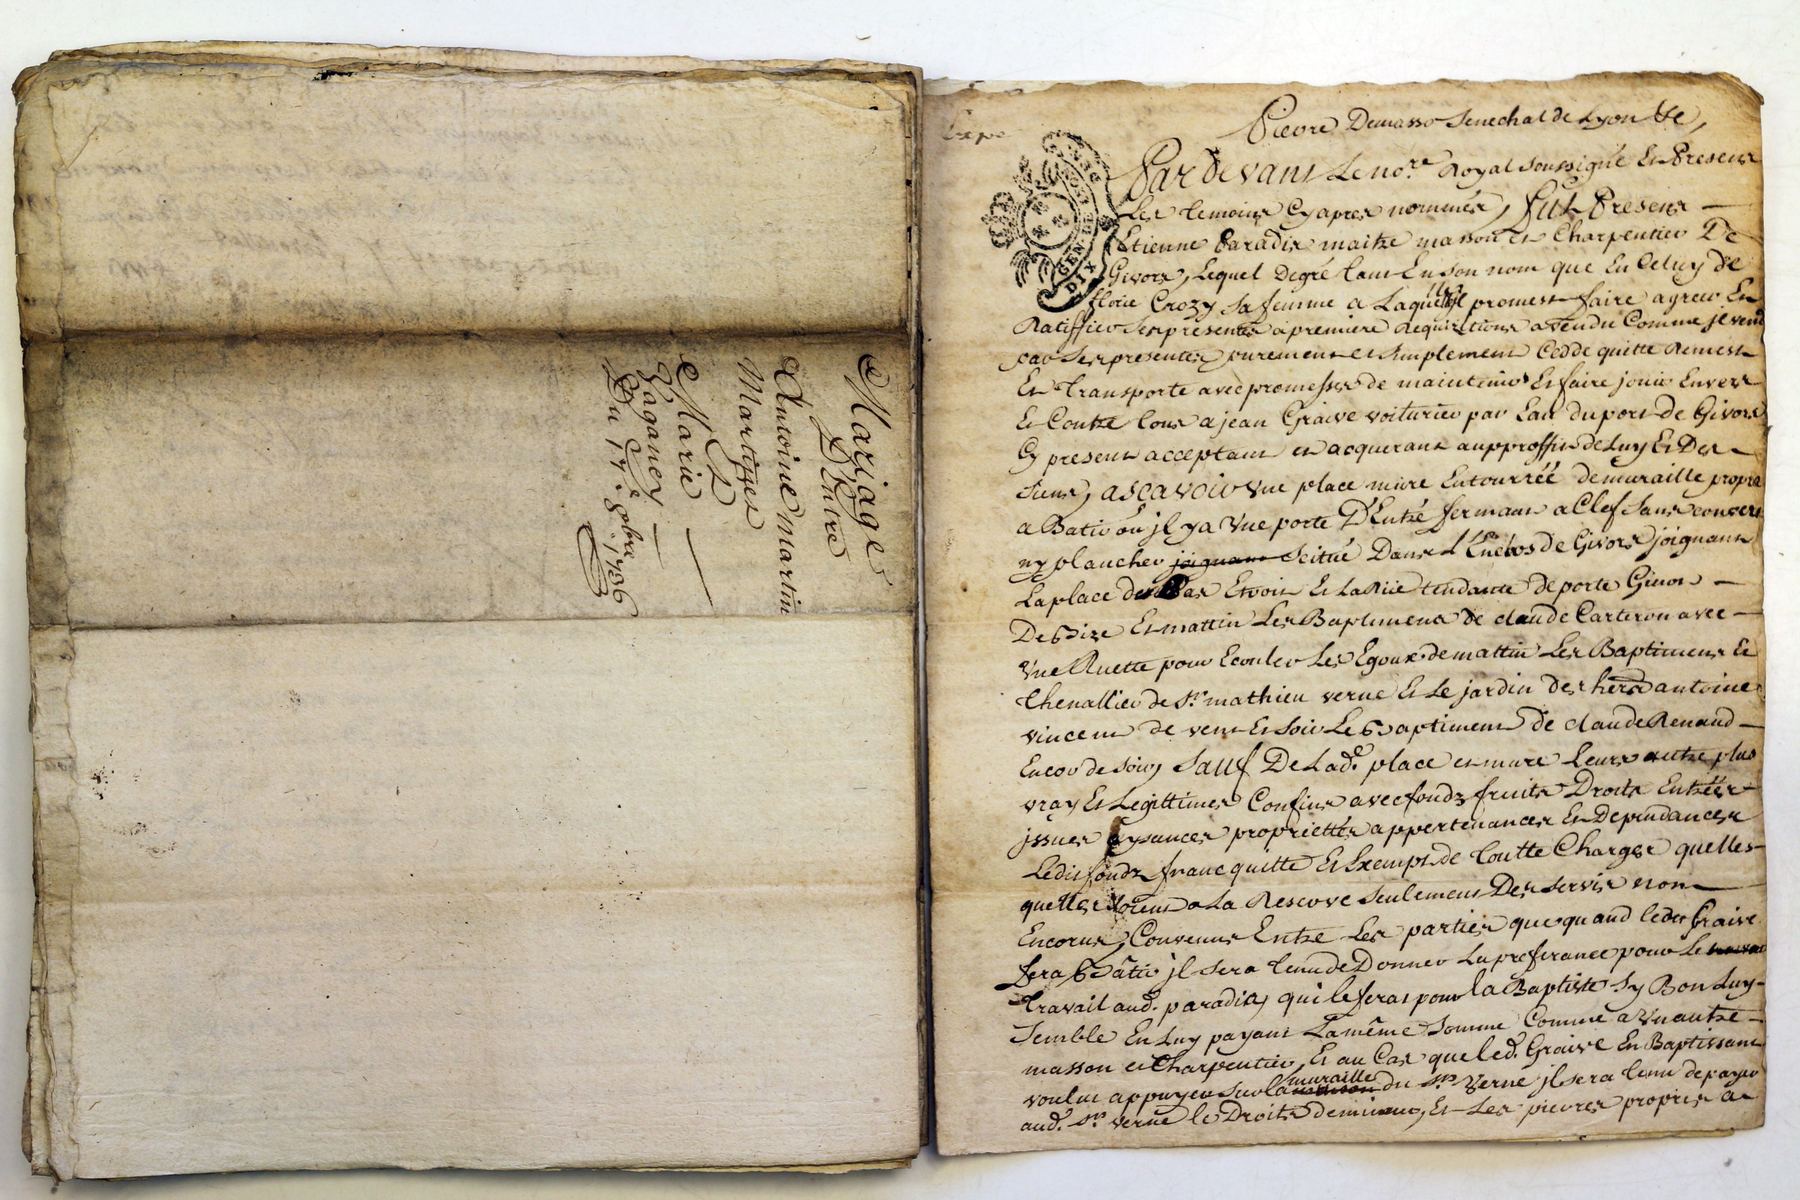 Mariage
D'Entre
Antoine martin
Martizet
&
Marie
Zaganey
Du 17e 9bre 1736
Expe
GEN DE LYON
DIX
Pierre Demasso Senechal de Lyon &c,
Pardevant Le nore. Royal soussigné Et Present
Les temoins Cyapres nommés, fut Present
Etienne Paradis maitre masson et Charpentier De
Givors, Lequel Degré tant En son nom que En Celuy de
floire Crozy sa femme a Laquelle il promest faire agreer Et
Ratiffier ses presentes a premiere Requizitions a vendu Comme jl vend
par ses presentes purement et simplement Cedde quitte Remest
Et transporte avec promesses de maintenir Et faire jouir Envers
Et Contre tous a jean Graive voiturier par Eau du port de Givors
Cy present acceptant et acquerant au proffit de Luy Et Des
siens, ascavoir vne place mure Entourréé de muraille propre
a Batir ou jl y a vne porte D'Entré fermant a Clef sans couvert
ny plancher joignant scitué Dans L'Enclos de Givors joignant
La place des Bas Et voit Et La Rüe tendante de porte Givors
De Bize Et mattin Les Baptiments de claude Carteron avec
vne Ruette pour Ecouler Les Egoux. de mattin Les Baptiments Et
Chenallier de sr. mathieu verne Et Le jardin des hers d'antoine
vincent de vent Et soir Le Baptiment de claude Renaud
Encor de soir, sauf De Lade. place et mure Leurs autre plus
vray Et Legittimes Confins avec fondz fruits Droits Entréés
jssues aysances propriettés appertenances Et Dependances
Ledit fondz franc quitte Et Exempt de toutte Charges quelles
quelles soient a La Reserve seulement Des servis non
Encorus, Convenus Entre Les parties que quand ledit Graive
fera Bâtir jl sera tenu de Donner La preferance pour Le
travail aud. paradis, qui le ferat pour la Baptiste sy Bon Luy
semble En Luy payant La même somme Comme a vn autre
masson et Charpentier, Et au Cas que led. Graive En Baptissant
voulut appuyer sur la muraille du sr. verne jl sera tenu de payer
aud. sr. verne le Droits de mieux, Et Les pierres propris a